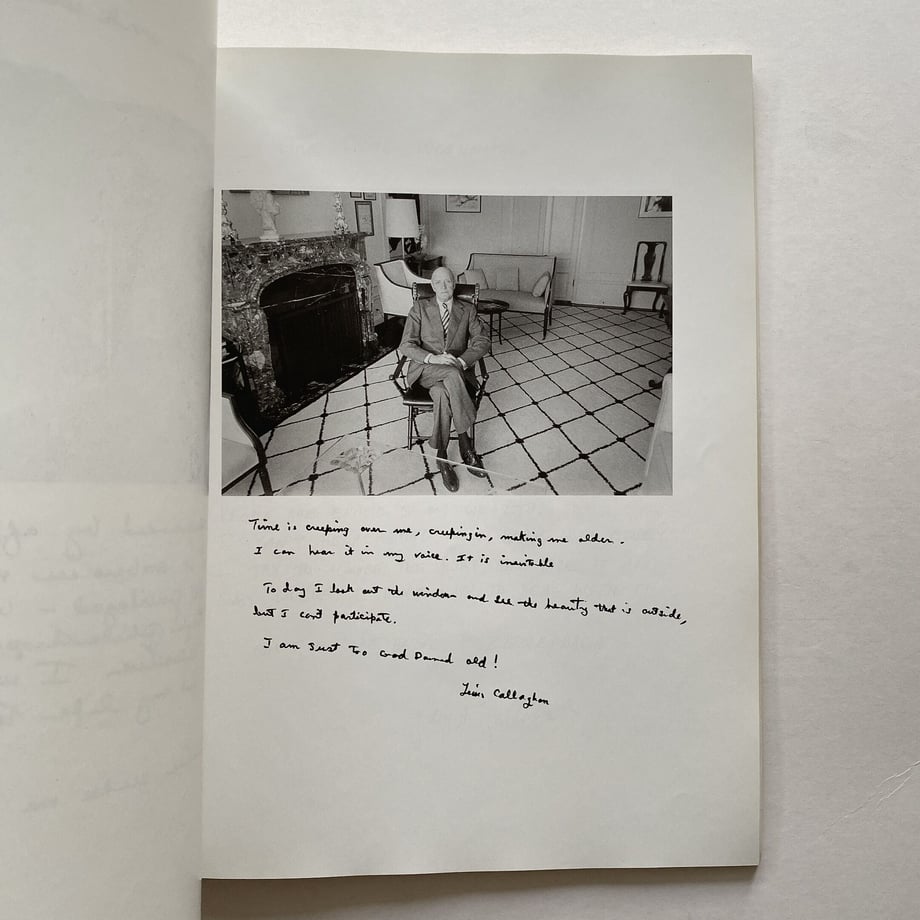 Time is creeping over me, creeping in, making me older.
I can hear it in my voice. It is inevitable
To day I look out the window and see the beauty that is outside,
but I can't participate.
I am Just Too God Damned old!
Callaghan